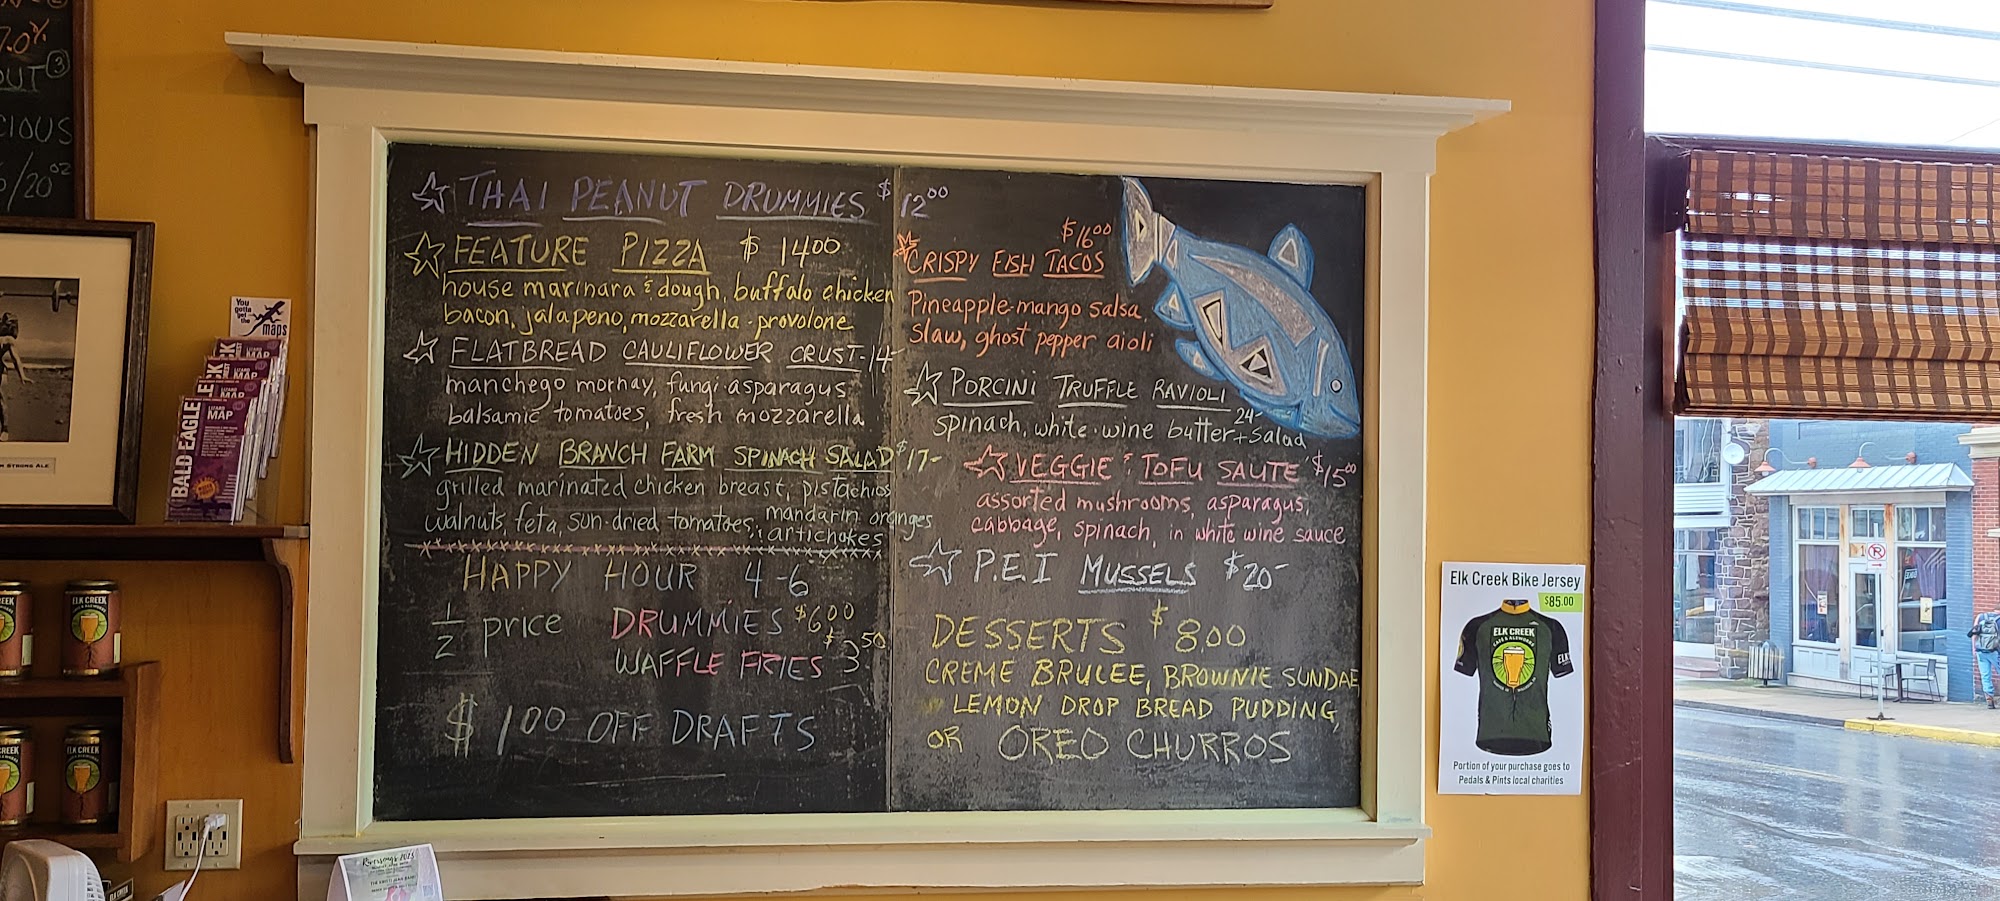 7.0%
OUT 3
CIOUS
/20 oz
STRONG ALE
You gotta get the maps
LIZARD MAP
BALD EAGLE
ELK CREEK
ELK CREEK
THAI PEANUT DRUMMIES $12.00
FEATURE PIZZA $14.00
house marinara & dough, buffalo chicken
bacon, jalapeno, mozzarella-provolone
FLATBREAD CAULIFLOWER CRUST-14-
manchego mornay, fungi asparagus
balsamic tomatoes, fresh mozzarella
HIDDEN BRANCH FARM SPINACH SALAD $17-
grilled marinated chicken breast, pistachios
walnuts, feta, sun-dried tomatoes, mandarin oranges
& artichokes
HAPPY HOUR 4-6
1/2 price DRUMMIES $6.00
WAFFLE FRIES $3.50
$1.00 OFF DRAFTS
$16.00
CRISPY FISH TACOS
Pineapple-mango salsa
slaw, ghost pepper aioli
PORCINI TRUFFLE RAVIOLI 24-
spinach, white-wine butter + salad
VEGGIE & TOFU SAUTE $15.00
assorted mushrooms, asparagus,
cabbage, spinach, in white wine sauce
P.E.I MUSSELS $20-
DESSERTS $8.00
CREME BRULEE, BROWNIE SUNDAE
LEMON DROP BREAD PUDDING,
OR OREO CHURROS
Elk Creek Bike Jersey
$85.00
ELK CREEK
Portion of your purchase goes to
Pedals & Pints local charities